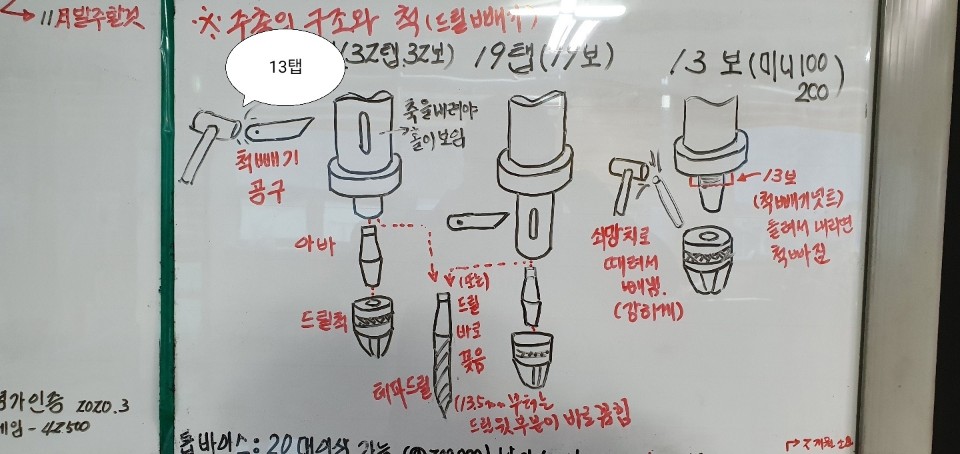 11月발주할것
※ 주축의 구조와 척(드릴빼기)
13탭
(32탭.32보)
19탭(19보)
13보(미니100
200)
축을내려야
홀이보임
척빼기
공구
아바
드릴척
(또는)
드릴
바로
꽂음
테파드릴
(13.5mm부터는
드릴뒷부분이 바로꽂힘
쇠망치로
때려서
빼냄.
(강하게)
13보
(척빼기넛트)
돌려서 내리면
척빠짐
가인증 2020.3
게임-42500
바이스: 20